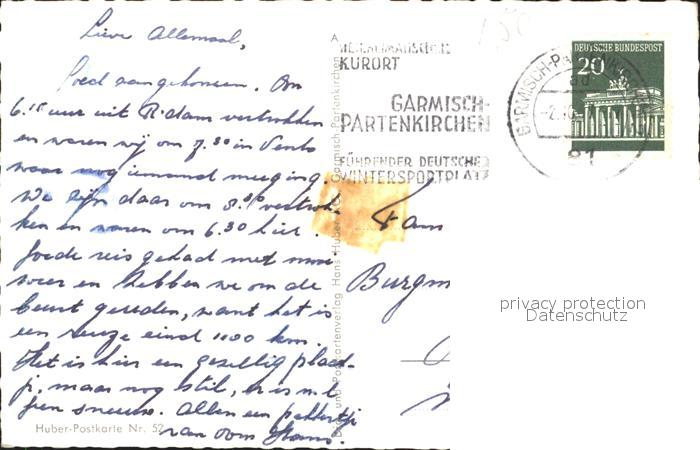 Lieve Allemaal,
Goed aangekomen. Om
6.15 uur uit R.dam vertrokken
en waren wij om 7.30 in Venlo
waar nog iemand meeging.
We zijn daar om 8.00 vertrok-
ken en waren om 6.30 hier.
Goede reis gehad met mooi
weer en hebben we om de
beurt gereden, want het is
een ruige eind 1000 km.
Het is hier een gezellig plaats-
je, maar nog stil, er is nl.
geen sneeuw. Allen een pakkertje
van oom Hans.
Huber-Postkarte Nr. 52
Garmisch-Partenkirchen
Postkartenverlag Hans Huber
KURORT
GARMISCH-
PARTENKIRCHEN
FÜHRENDER DEUTSCHER
WINTERSPORTPLATZ
GARMISCH-PARTENKIRCHEN
DEUTSCHE BUNDESPOST
20
Fam
Burgm
privacy protection
Datenschutz